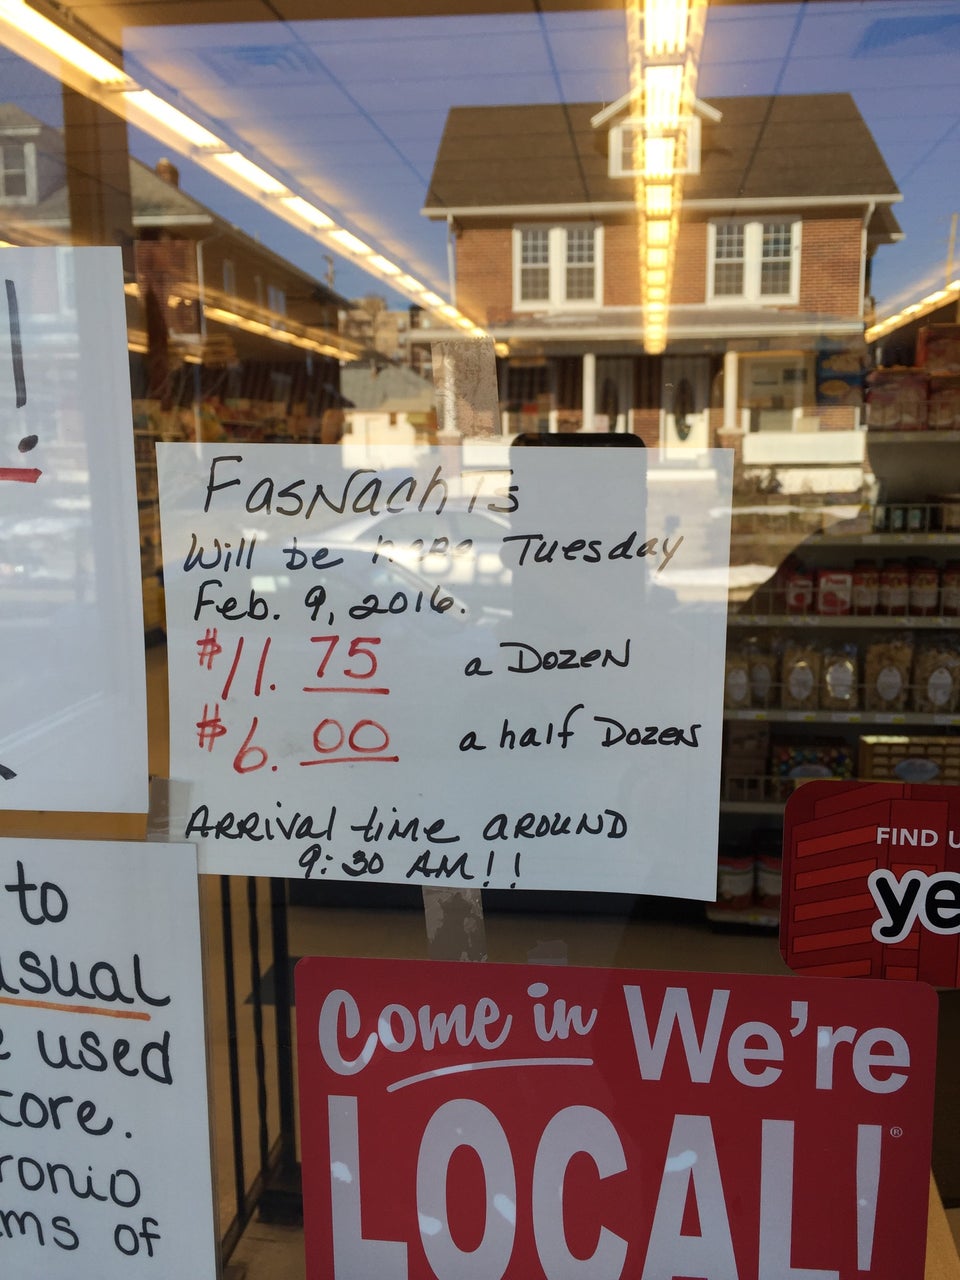 !
FasNachTs
Will be here Tuesday
Feb. 9, 2016.
$11.75 a Dozen
$6.00 a half Dozen
Arrival time around
9:30 AM!!
to
usual
used
tore.
ronio
ms of
FIND U
ye
Come in We're
LOCAL!
®